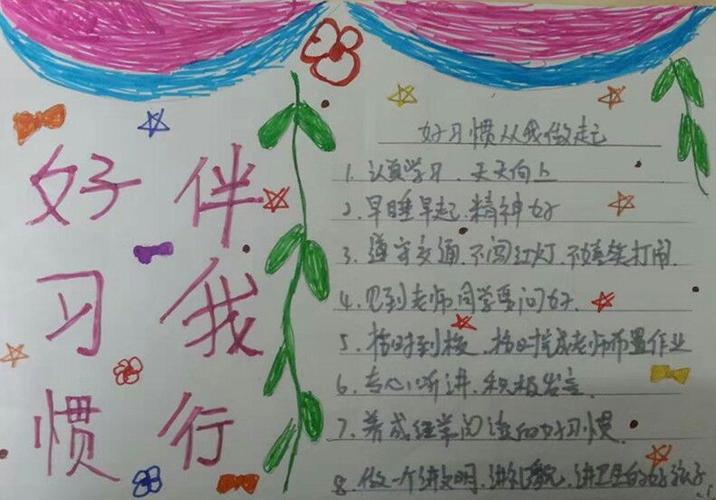 好习惯
伴我行
好习惯从我做起
1. 认真学习. 天天向上
2. 早睡早起. 精神好
3. 遵守交通. 不闯红灯. 不嬉笑打闹.
4. 见到老师同学要问好.
5. 按时到校. 按时完成老师布置作业
6. 专心听讲. 积极发言.
7. 养成经常阅读的好习惯.
8. 做一个讲文明. 讲礼貌. 讲卫生的好孩子